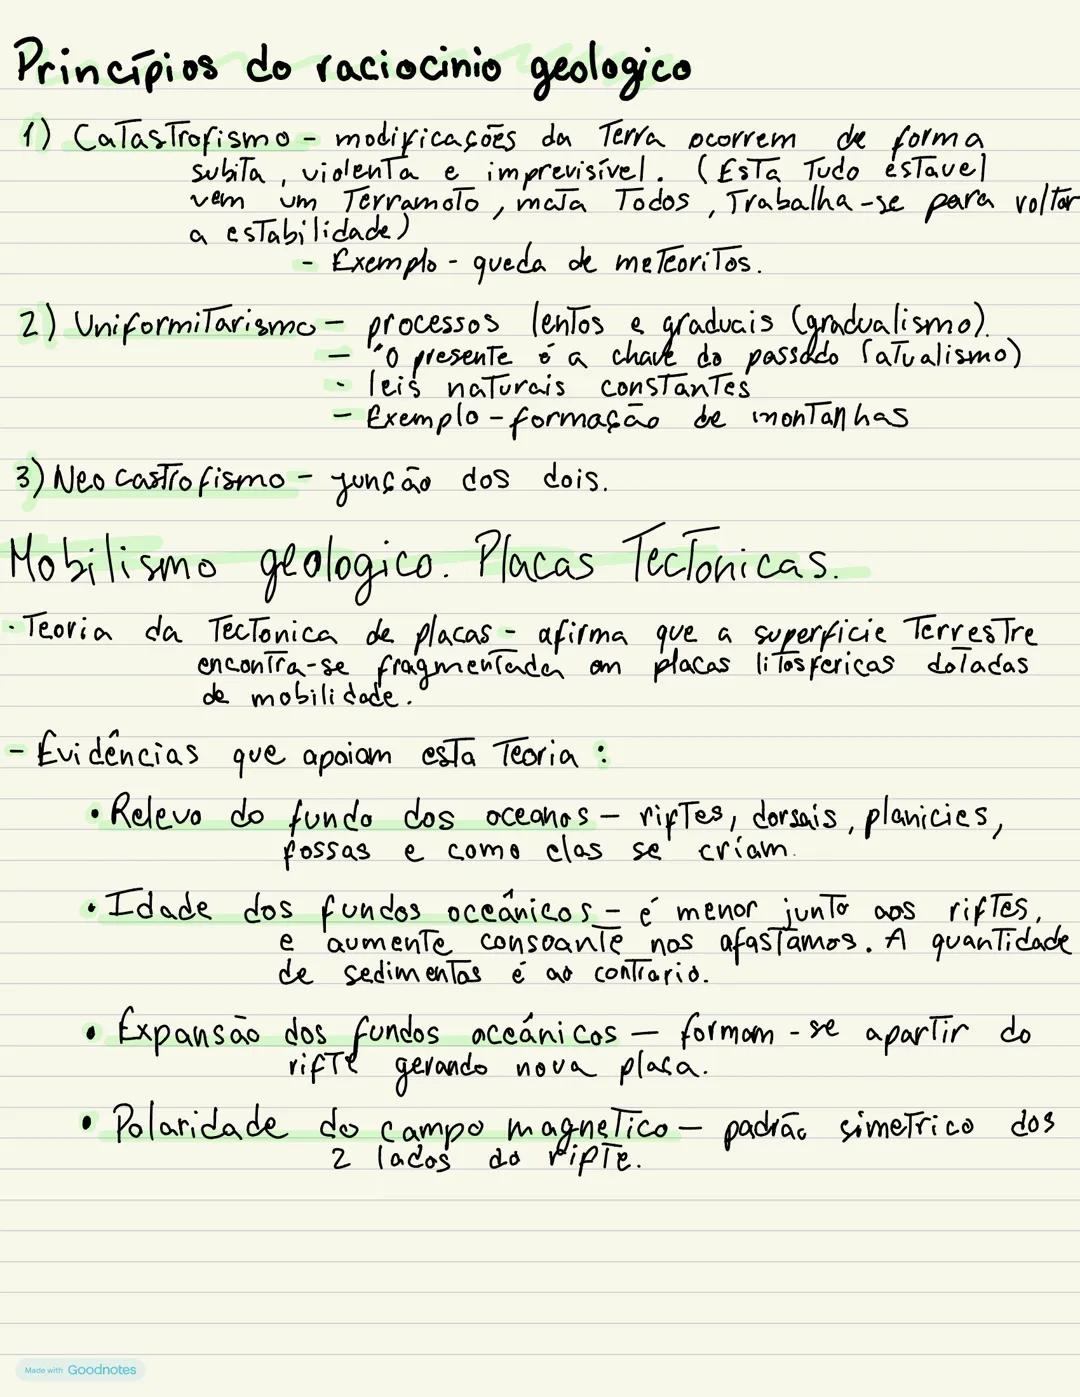 Princípios do raciocinio geologico
1) Catastrofismo - modificações da Terra ocorrem de forma
subita, violenta e imprevisível. (Esta tudo estavel
vem um terramoto, mata todos, trabalha-se para voltar
a estabilidade)
- Exemplo - queda de meteoritos.
2) Uniformitarismo - processos lentos e graduais (gradualismo).
- "O presente é a chave do passado (atualismo)
- leis naturais constantes
- Exemplo - formação de montanhas
3) Neo castrofismo - junção dos dois.
Mobilismo geologico. Placas Tectonicas.
• Teoria da Tectonica de placas - afirma que a superficie Terrestre
encontra-se fragmentada em placas litosfericas dotadas
de mobilidade.
- Evidências que apoiam esta teoria:
• Relevo do fundo dos oceanos - riftes, dorsais, planicies,
fossas e como elas se criam.
• Idade dos fundos oceânicos - é menor junto aos riftes,
e aumente consoante nos afastamos. A quantidade
de sedimentos é ao contrario.
• Expansão dos fundos oceánicos - formam-se apartir do
rifte gerando nova placa.
• Polaridade do campo magnetico - padrão simetrico dos
2 lados do rifte.
Made with Goodnotes